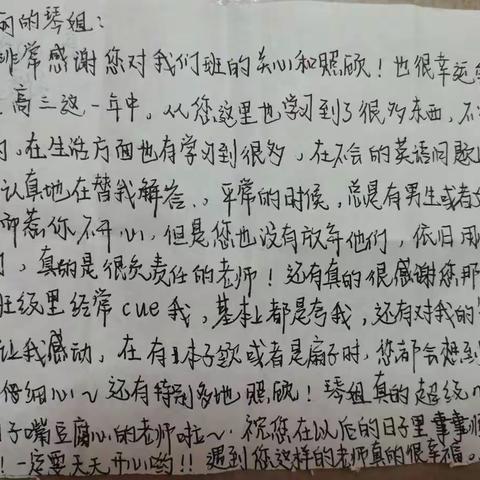 的琴姐：
非常感谢您对我们班的关心和照顾！也很幸运
高三这一年中，从您这里也学习到了很多东西，不
，在生活方面也有学习到很多，在不会的英语问题
认真地在替我解答.，平常的时候，总是有男生或者
惹你不开心，但是您也没有放弃他们，依旧用
，真的是很负责任的老师！还有真的很感谢您那
班级里经常cue我，基本上都是夸我，还有对我的
让我感动，在有本子或者是扇子时，您都会想到
得细心～还有特别多地照顾！琴姐真的超级
子嘴豆腐心的老师啦～.祝您在以后的日子里事事顺
！一定要天天开心哟!!遇到您这样的老师真的很幸福。